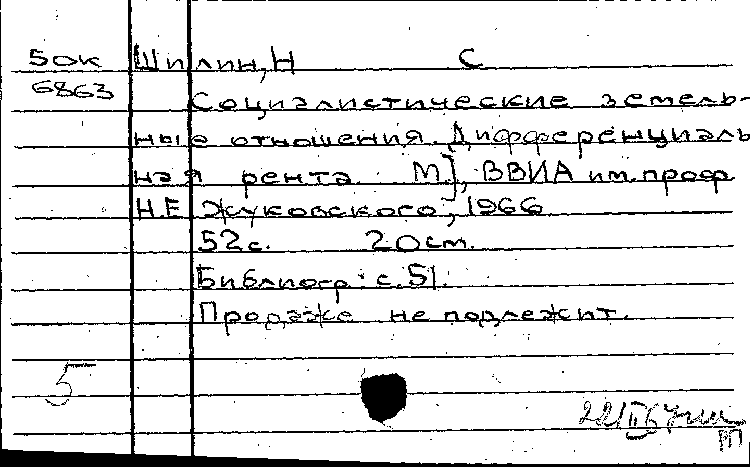 50к Шилин, Н С
6863 Социалистические земель-
ные отношения. Дифференциаль
ная рента М], ВВИА им. проф
Н.Е Жуковского, 1966
52 с. 20 см.
Библиогр: с. 51.
Продаже не подлежит.
5
РП